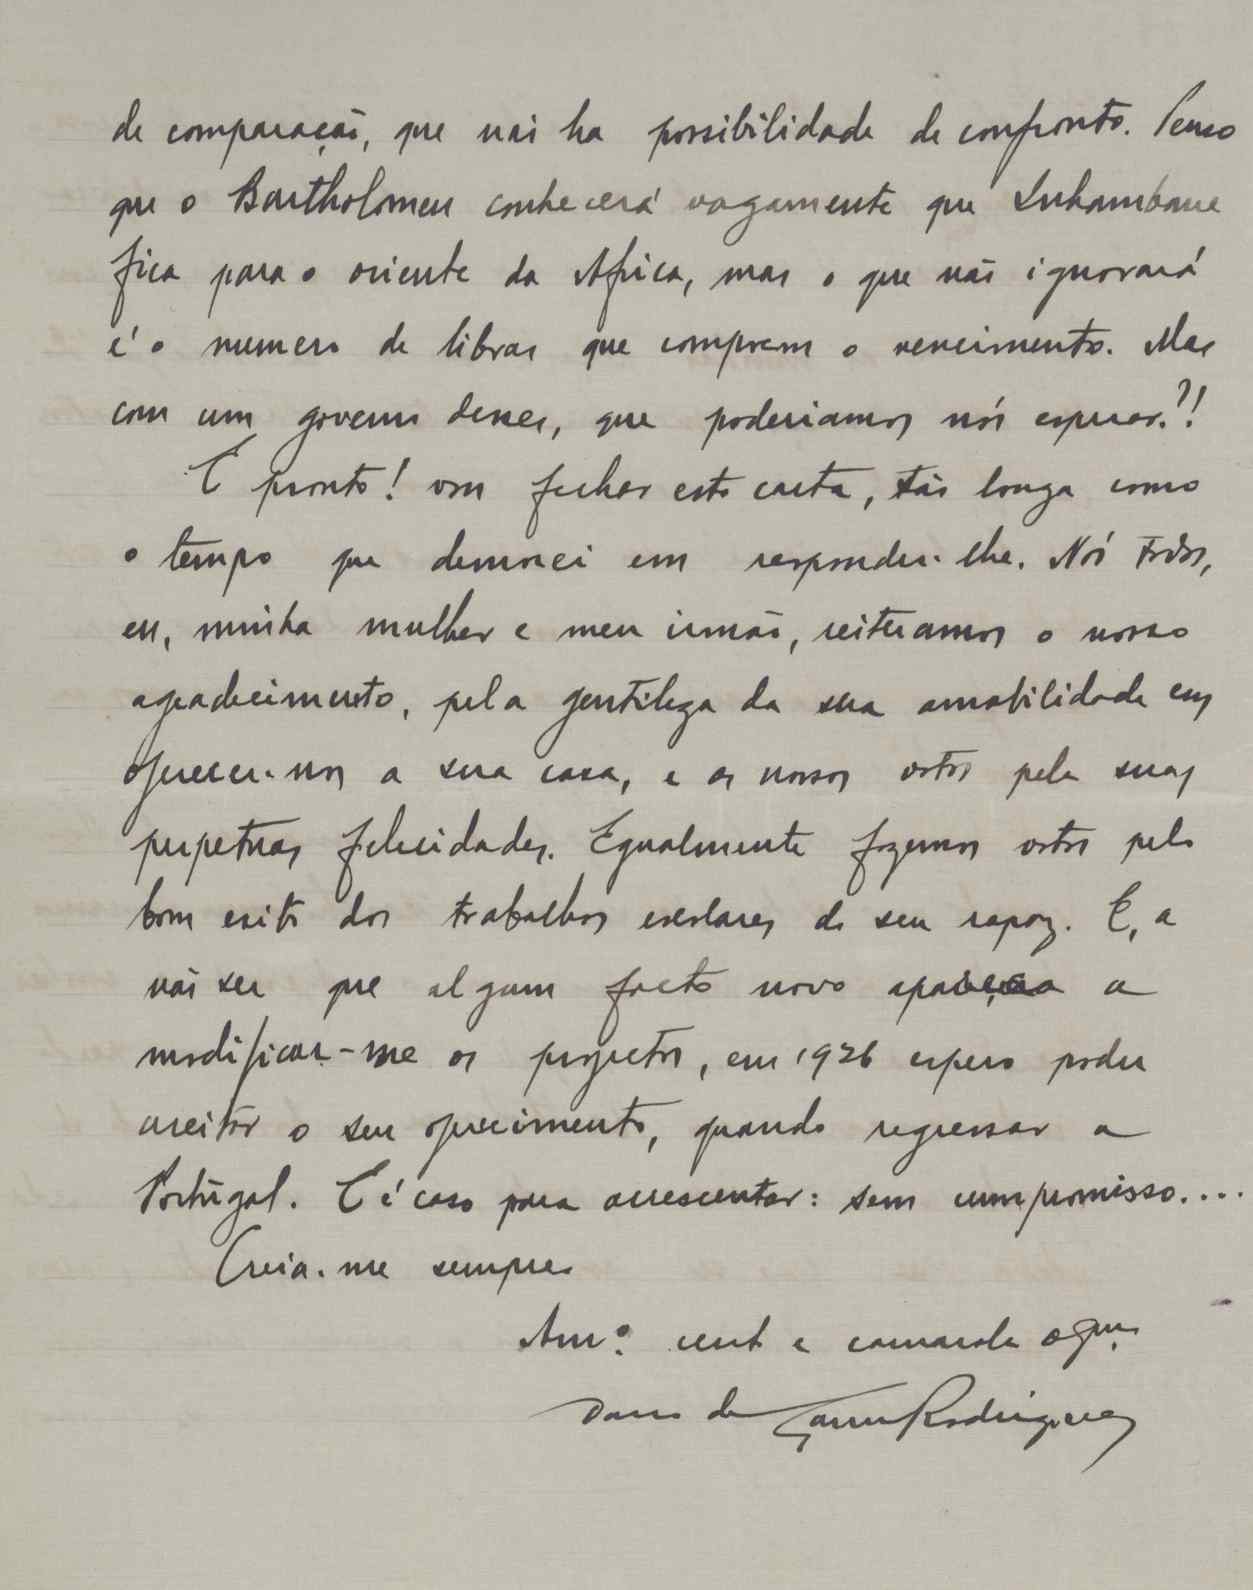 de comparação, que não ha possibilidade de confronto. Penso
que o Bartholomeu conhecerá vagamente que Inhambane
fica para o oriente da Africa, mas o que não ignorará
é o numero de libras que comprem o vencimento. Mas
com um governo desses, que poderiamos nós esperar?!
E pronto! vou fechar esta carta, tão longa como
o tempo que demorei em responder-lhe. Nós todos,
eu, minha mulher e meu irmão, reiteramos o nosso
agradecimento, pela gentileza da sua amabilidade em
oferecer-nos a sua casa, e os nossos votos pelas suas
perpetuas felicidades. Egualmente fazemos votos pelo
bom exito dos trabalhos escolares do seu rapaz. E, a
não ser que algum facto novo apareça a
modificar-me os projectos, em 1926 espero poder
aceitar o seu oferecimento, quando regressar a
Portugal. E é caso para acrescentar: sem compromisso....
Creia-me sempre
Am.º cert e camarada
de Rodrigues